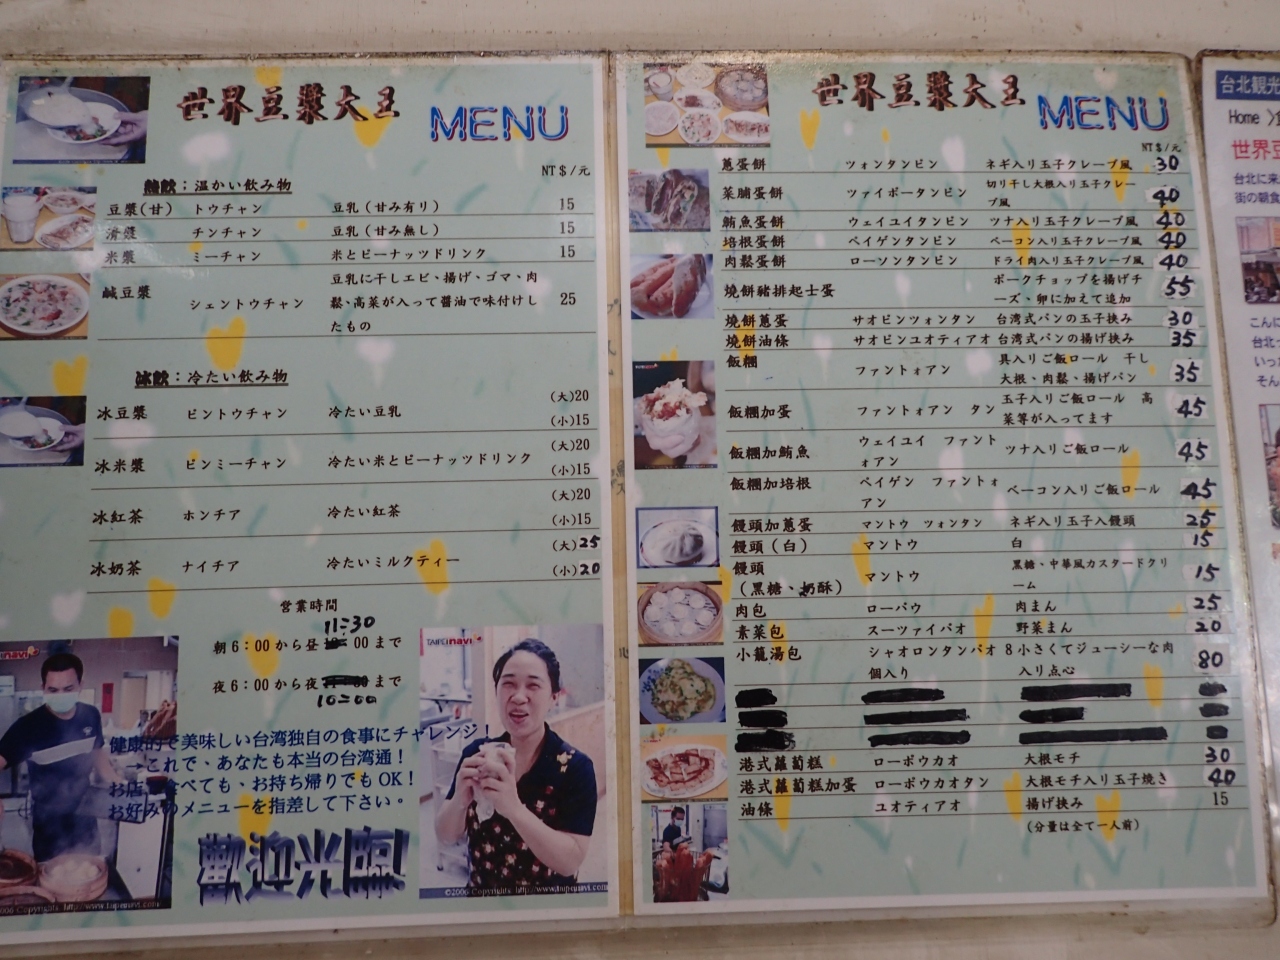 世界豆漿大王 MENU
NT$/元
熱飲：温かい飲み物
豆漿(甘) トウチャン 豆乳(甘み有り) 15
清漿 チンチャン 豆乳(甘み無し) 15
米漿 ミーチャン 米とピーナッツドリンク 15
鹹豆漿 シェントウチャン 豆乳に干しエビ、揚げ、ゴマ、肉
鬆、高菜が入って醤油で味付けし 25
たもの
冰飲：冷たい飲み物
冰豆漿 ビントウチャン 冷たい豆乳 (大)20
(小)15
冰米漿 ビンミーチャン 冷たい米とピーナッツドリンク (大)20
(小)15
冰紅茶 ホンチア 冷たい紅茶 (大)20
(小)15
冰奶茶 ナイチア 冷たいミルクティー (大)25
(小)20
営業時間
11:30
朝6:00から昼 00まで
夜6:00から夜 まで
10:00
健康的で美味しい台湾独自の食事にチャレンジ！
→これで、あなたも本当の台湾通！
お店 食べても、お持ち帰りでもOK！
お好みのメニューを指差して下さい。
歡迎光臨
TAIPEInavi
©2006 Copyrights http://www.taipeinavi.com
世界豆漿大王 MENU
NT$/元
蔥蛋餅 ツォンタンビン ネギ入り玉子クレープ風 30
菜脯蛋餅 ツァイポータンビン 切り干し大根入り玉子クレー
プ風 40
鮪魚蛋餅 ウェイユイタンビン ツナ入り玉子クレープ風 40
培根蛋餅 ペイゲンタンビン ベーコン入り玉子クレープ風 40
肉鬆蛋餅 ローソンタンビン ドライ肉入り玉子クレープ風 40
燒餅豬排起士蛋 ポークチョップを揚げチ
ーズ、卵に加えて追加 55
燒餅蔥蛋 サオビンツォンタン 台湾式パンの玉子挟み 30
燒餅油條 サオビンユオティアオ 台湾式パンの揚げ挟み 35
飯糰 ファントォアン 具入りご飯ロール 干し
大根、肉鬆、揚げパン 35
飯糰加蛋 ファントォアン タン 玉子入りご飯ロール 高
菜等が入ってます 45
飯糰加鮪魚 ウェイユイ ファント
ォアン ツナ入りご飯ロール 45
飯糰加培根 ペイゲン ファントォ
アン ベーコン入りご飯ロール 45
饅頭加蔥蛋 マントウ ツォンタン ネギ入り玉子入饅頭 25
饅頭(白) マントウ 白 15
饅頭
(黑糖、奶酥) マントウ 黒糖、中華風カスタードクリ
ーム 15
肉包 ローパウ 肉まん 25
素菜包 スーツァイパオ 野菜まん 20
小籠湯包 シャオロンタンパオ 8 小さくてジューシーな肉
個入り 入り点心 80
港式蘿蔔糕 ローボウカオ 大根モチ 30
港式蘿蔔糕加蛋 ローボウカオタン 大根モチ入り玉子焼き 40
油條 ユオティアオ 揚げ挟み 15
(分量は全て一人前)
台北観光
Home
世界豆
台北に来
街の朝食
こんに
台北
いっ
そん